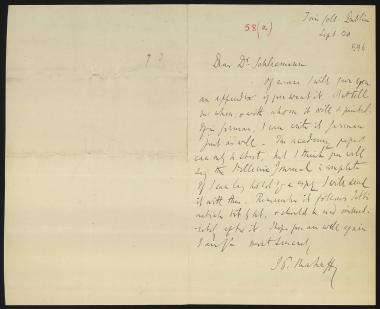 58(a)
Trin. Coll. Dublin
Sept. 20
Dear Dr. Schliemann
Of course I will give you
an appendix if you want it. But tell
me when, & with whom it will be printed.
German, I can write it German
just as well. The academy paper
can only be short, but I think you will
say the Hellenic Journal is complete
If I can lay hold of a copy I will send
it with this. Remember it follows
article bit by bit, & should be read
after it. Hope you are well again
I am
most sincerely
J. P. Mahaffy